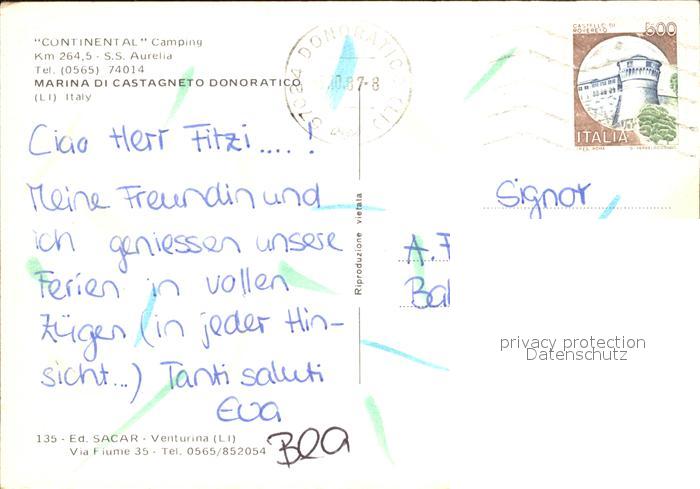 "CONTINENTAL" Camping
Km 264,5 - S.S. Aurelia
Tel. (0565) 74014
MARINA DI CASTAGNETO DONORATICO
(LI) Italy
57024 DONORATICO (LI)
.10.87-8
CASTELLO DI
ROVERETO
500
ITALIA
Ciao Herr Fitzi....!
Meine Freundin und
ich geniessen unsere
Ferien in vollen
Zügen (in jeder Hin-
sicht...) Tanti saluti
Eva
Bea
Riproduzione vietata
Signor
A. F
Bal
privacy protection
Datenschutz
135 - Ed. SACAR - Venturina (LI)
Via Fiume 35 - Tel. 0565/852054